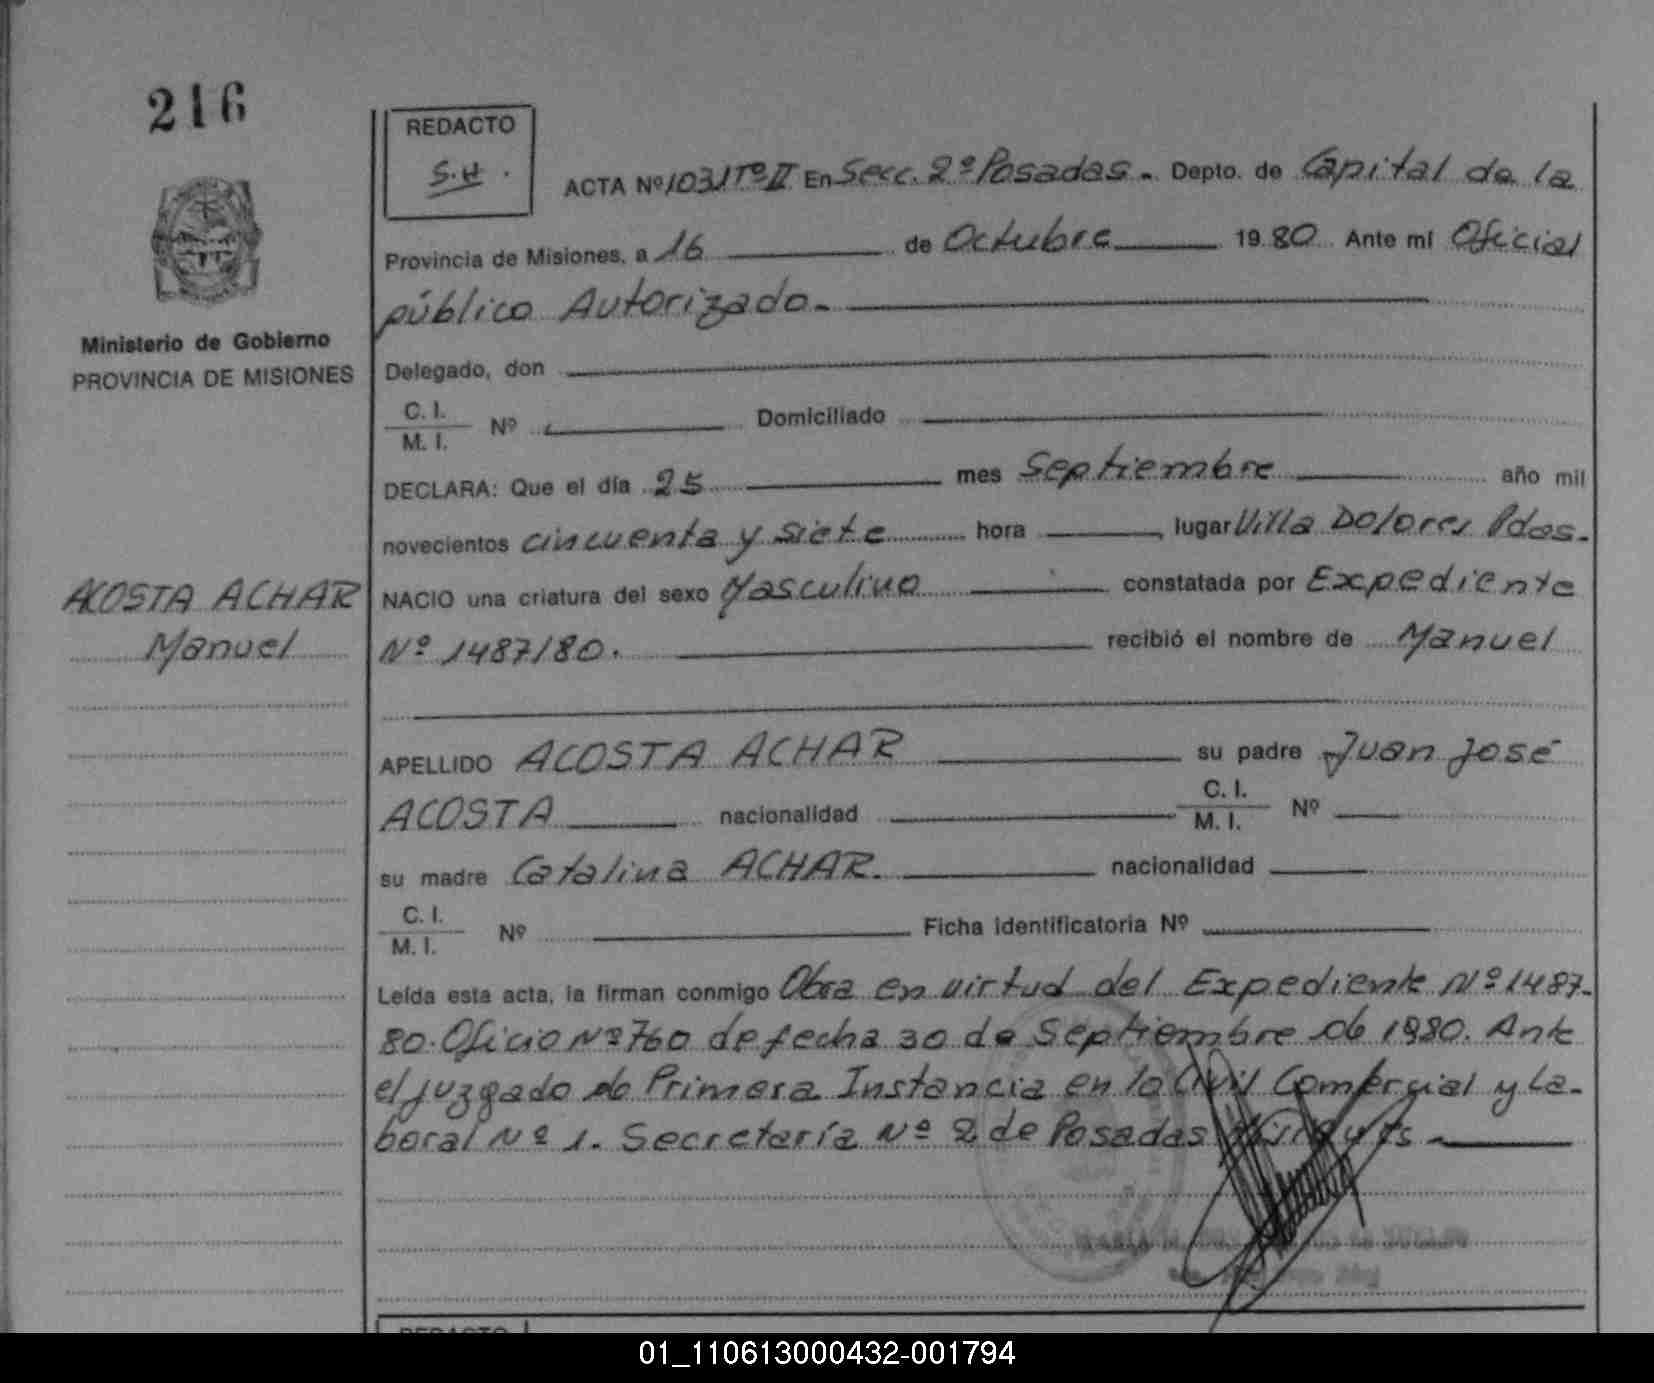 216
REDACTO
S.H.
ACTA Nº 1031 Tº II En Secc. 2º Posadas. Depto. de Capital de la
Provincia de Misiones, a 16 de Octubre 19 80 Ante mí Oficial
público Autorizado.
Ministerio de Gobierno
PROVINCIA DE MISIONES
Delegado, don
C. I.
M. I. Nº Domiciliado
DECLARA: Que el día 25 mes Septiembre año mil
novecientos cincuenta y siete hora lugar Villa Dolores Pdas.
ACOSTA ACHAR
Manuel
NACIO una criatura del sexo Masculino constatada por Expediente
Nº 1487/80. recibió el nombre de Manuel
APELLIDO ACOSTA ACHAR su padre Juan José
ACOSTA nacionalidad C. I. M. I. Nº
su madre Catalina ACHAR. nacionalidad
C. I.
M. I. Nº Ficha identificatoria Nº
Leída esta acta, la firman conmigo Obra en virtud del Expediente Nº 1487-
80. Oficio Nº 760 de fecha 30 de Septiembre de 1980. Ante
el juzgado de Primera Instancia en lo Civil Comercial y La-
boral Nº 1. Secretaría Nº 2 de Posadas
REDACTO
01_110613000432-001794